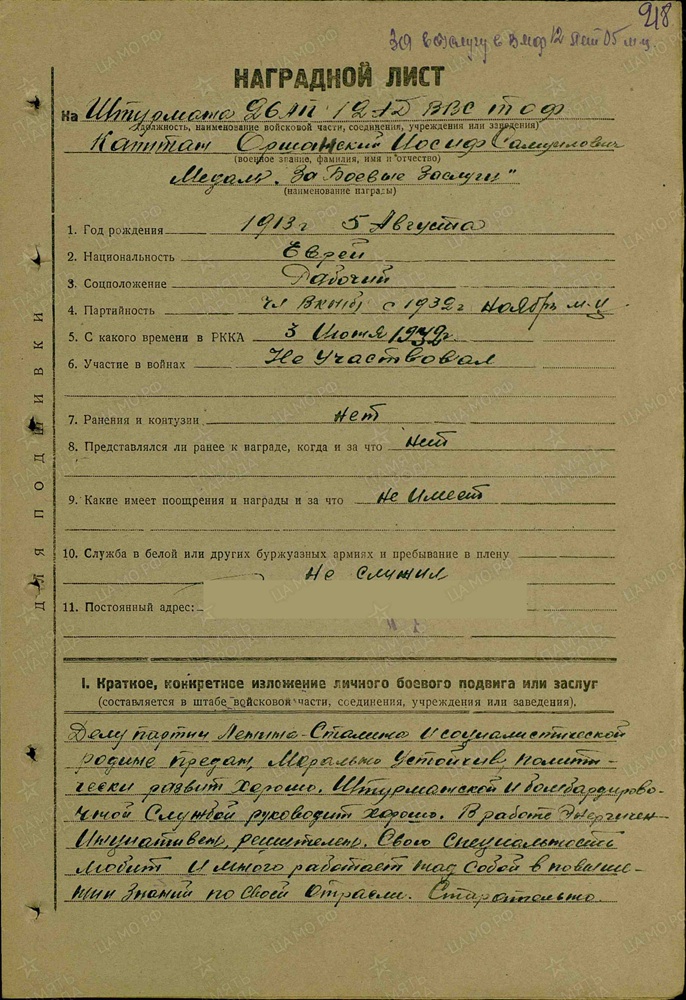 218
За выслугу в 12 лет 05 м-ц.
НАГРАДНОЙ ЛИСТ
На Штурмана 26 АП 12 АД ВВС ТОФ
(должность, наименование войсковой части, соединения, учреждения или заведения)
Капитан Оршанский Иосиф Самуилович
(военное звание, фамилия, имя и отчество)
Медаль "За Боевые Заслуги"
(наименование награды)
1. Год рождения 1913 г 5 Августа
2. Национальность Еврей
3. Соцположение Рабочий
4. Партийность чл ВКП(б) с 1939 г ноябрь м-ц
5. С какого времени в РККА 3 Июня 1932 г.
6. Участие в войнах Не участвовал
7. Ранения и контузии нет
8. Представлялся ли ранее к награде, когда и за что нет
9. Какие имеет поощрения и награды и за что не имеет
10. Служба в белой или других буржуазных армиях и пребывание в плену
не служил
11. Постоянный адрес:
I. Краткое, конкретное изложение личного боевого подвига или заслуг
(составляется в штабе войсковой части, соединения, учреждения или заведения).
Делу партии Ленина-Сталина и социалистической
родине предан, Морально устойчив, полити-
чески развит хорошо. Штурманской и бомбардирово-
чной Службой руководит хорошо. В работе Энергичен
Инициативен, решителен. Свою специальность
любит и много работает над собой в повыше-
нии знаний по своей отрасли. Старательно
ДЛЯ ПОДШИВКИ